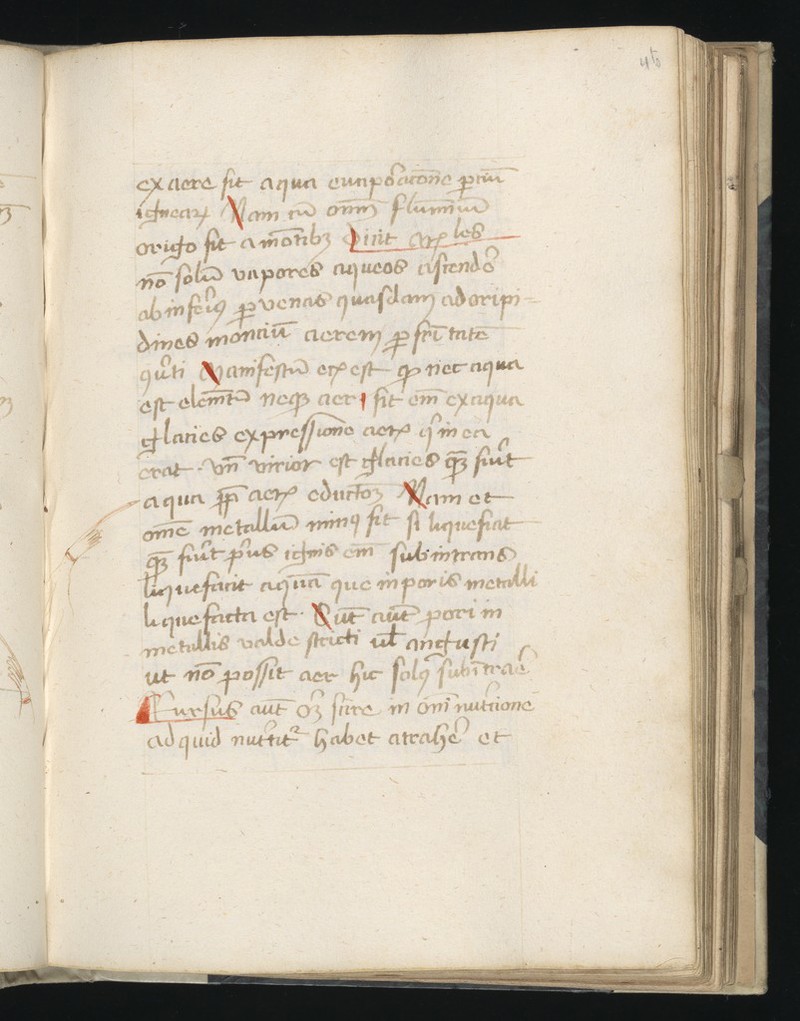 46
ex aere fit aqua euapor̄acōne p̄ciū
igneaꝝ Nam cū om̄m fluminū
origo fit a mōtibꝫ Dicit Arꝫles
nō solū vapores aqueos ascendēr̄
ab inferiꝰ ꝑ venas quasdam ad oripi=
dines monciū aerem ꝑ
Manifestū est ꝙ nec aqua
est elem̄tū neqꝫ aer fit em̄ ex aqua
glacies expressione aerꝫ q̄ in ea
erat. vn̄ vicior est glacies qꝫ fu̅it
aqua ꝓp̄ aerꝫ eductōꝫ Nam et
om̄e metallū minꝰ fit si liquefiat
qꝫ fu̅it pr̄us ignis em̄ subintrans
liquefacit aquā que in poris metalli
liquefacta est. Sūt aūt pori in
metallis valde stricti ul̄ angusti
ut nō possit aer hic solꝰ subītrar̄e
Rursus aūt oꝫ scire in om̄i nutr̄cione
ad quid nutrit᷑ habet atraher̄ et